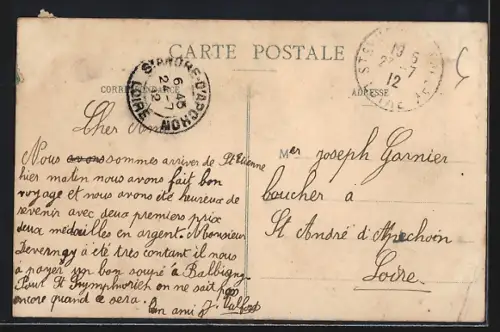 CARTE POSTALE
CORRESPONDANCE
ADRESSE
ST ANDRÉ-D'APCHON
6 45
2 -7
12
LOIRE
19 5
2 -7
12
LOIRE
Cher Ami
Nous avons sommes arriver de St Etienne
hier matin nous avons fait bon
voyage et nous avons été heureuse de
revenir avec deux premiers prix
deux médailles en argent. Monsieur
à été très contant il nous
à payer un bon soupé à Balbigny
Pour St Symphorien on ne sait pas
encore quand ce sera.
ton ami J. Valfort
Mer Joseph Garnier
boucher à
St André d'Apchon
Loire